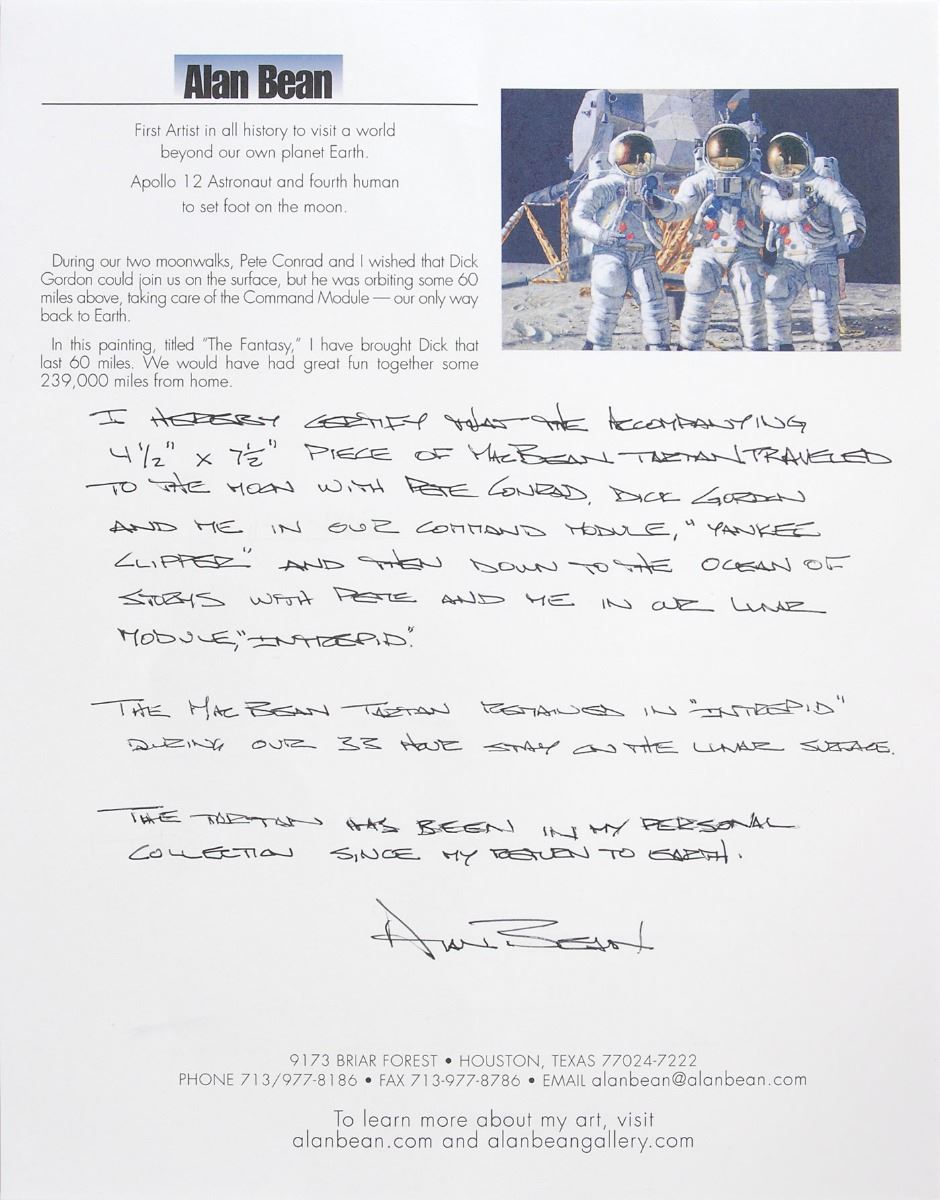 Alan Bean
First Artist in all history to visit a world
beyond our own planet Earth.
Apollo 12 Astronaut and fourth human
to set foot on the moon.
During our two moonwalks, Pete Conrad and I wished that Dick
Gordon could join us on the surface, but he was orbiting some 60
miles above, taking care of the Command Module — our only way
back to Earth.
In this painting, titled "The Fantasy," I have brought Dick that
last 60 miles. We would have had great fun together some
239,000 miles from home.
I HEREBY CERTIFY THAT THE ACCOMPANYING
4 1/2" x 7 1/2" PIECE OF MACBEAN TARTAN TRAVELED
TO THE MOON WITH PETE CONRAD, DICK GORDON
AND ME IN OUR COMMAND MODULE, "YANKEE
CLIPPER" AND THEN DOWN TO THE OCEAN OF
STORMS WITH PETE AND ME IN OUR LUNAR
MODULE, "INTREPID".
THE MACBEAN TARTAN REMAINED IN "INTREPID"
DURING OUR 33 HOUR STAY ON THE LUNAR SURFACE.
THE TARTAN HAS BEEN IN MY PERSONAL
COLLECTION SINCE MY RETURN TO EARTH.
ALAN BEAN
9173 BRIAR FOREST • HOUSTON, TEXAS 77024-7222
PHONE 713/977-8186 • FAX 713-977-8786 • EMAIL alanbean@alanbean.com
To learn more about my art, visit
alanbean.com and alanbeangallery.com